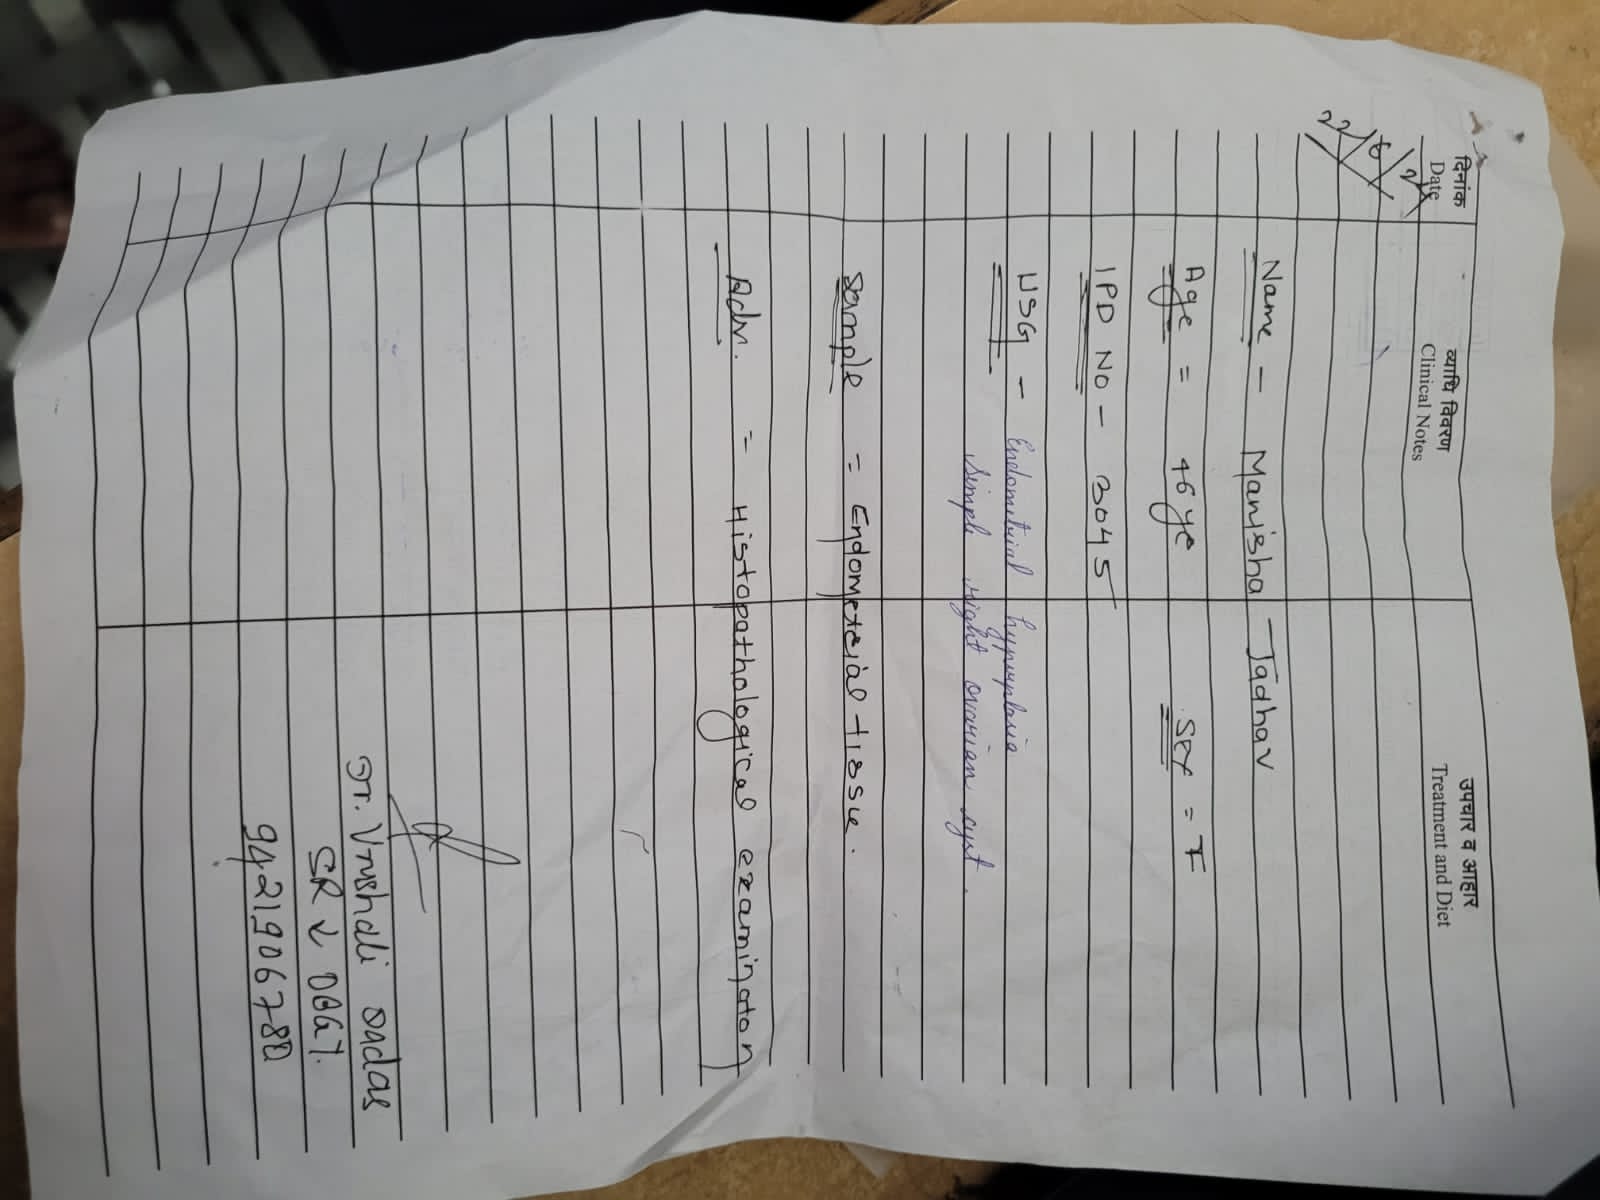 दिनांक
Date
व्याधि विवरण
Clinical Notes
उपचार व आहार
Treatment and Diet
22/6/
Name - Manisha Jadhav
Age = 46 yr Sex = F
IPD NO - 3045
USG - Endometrial hyperplasia
Simple right ovarian cyst.
Sample = Endometrial tissue.
Adv. = Histopathological examination
Dr. Vrushali
SR OBGY.